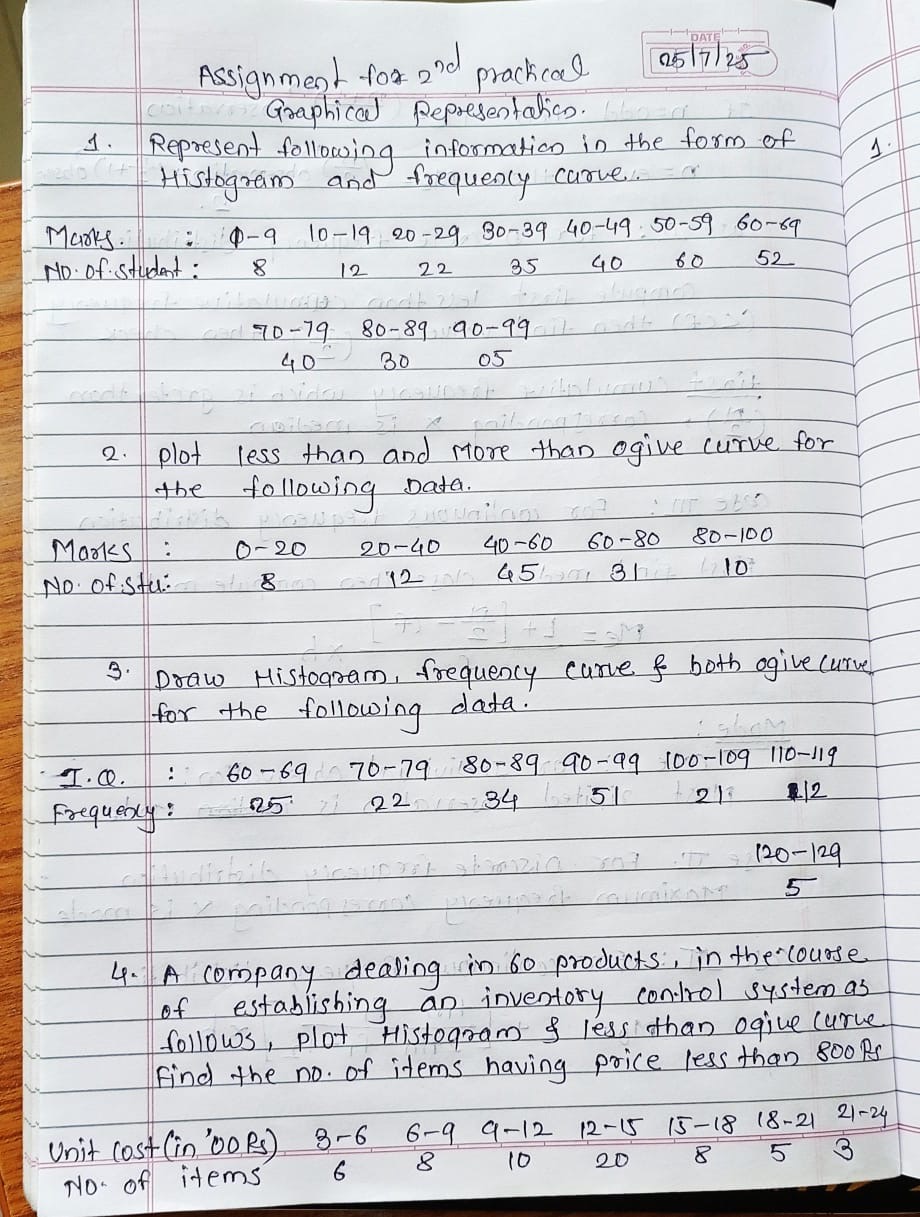 DATE
25/7/25
Assignment for 2nd practical
Graphical Representation.
1. Represent following information in the form of
Histogram and frequency curve.
Marks. : 0-9 10-19 20-29 30-39 40-49 50-59 60-69
No. of student : 8 12 22 35 40 60 52
70-79 80-89 90-99
40 30 05
2. plot less than and More than ogive curve for
the following Data.
Marks : 0-20 20-40 40-60 60-80 80-100
No. of stu: 8 12 45 31 10
3. Draw Histogram, frequency curve & both ogive curve
for the following data.
I.Q. : 60-69 70-79 80-89 90-99 100-109 110-119
Frequency : 25 22 34 51 21 12
120-129
5
4. A company dealing in 60 products, in the course
of establishing an inventory control system as
follows, plot Histogram & less than ogive curve
Find the no. of items having price less than 800 Rs
Unit cost (in '00 Rs) 3-6 6-9 9-12 12-15 15-18 18-21 21-24
No. of items 6 8 10 20 8 5 3
1.